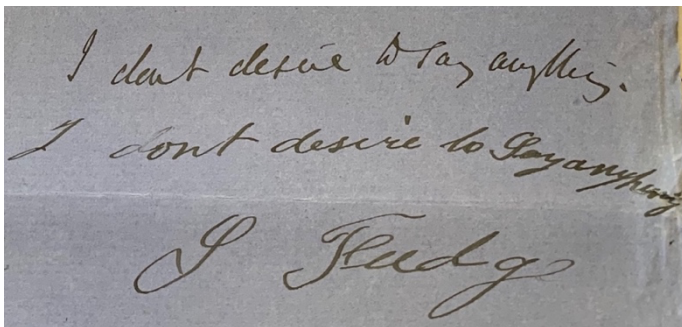 I dont desire to say anything.
I dont desire to Say anything
J Fludg